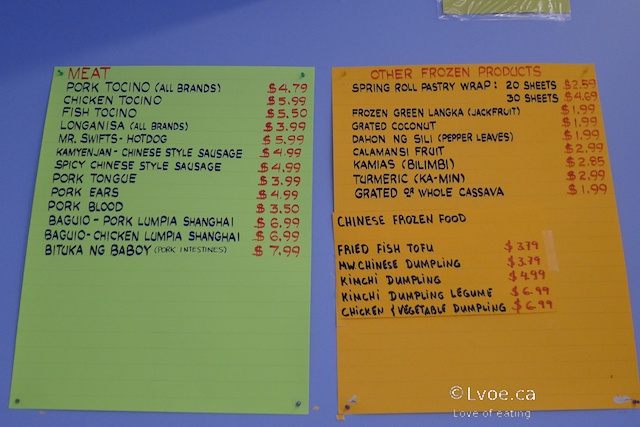 MEAT
PORK TOCINO (ALL BRANDS) $4.79
CHICKEN TOCINO $5.99
FISH TOCINO $5.50
LONGANISA (ALL BRANDS) $3.99
MR. SWIFTS - HOTDOG $5.99
KAMYENJAN - CHINESE STYLE SAUSAGE $4.99
SPICY CHINESE STYLE SAUSAGE $4.99
PORK TONGUE $3.99
PORK EARS $4.99
PORK BLOOD $3.50
BAGUIO - PORK LUMPIA SHANGHAI $6.99
BAGUIO - CHICKEN LUMPIA SHANGHAI $6.99
BITUKA NG BABOY (PORK INTESTINES) $7.99
OTHER FROZEN PRODUCTS
SPRING ROLL PASTRY WRAP: 20 SHEETS $2.59
30 SHEETS $4.69
FROZEN GREEN LANGKA (JACKFRUIT) $1.99
GRATED COCONUT $1.99
DAHON NG SILI (PEPPER LEAVES) $1.99
CALAMANSI FRUIT $2.99
KAMIAS (BILIMBI) $2.85
TURMERIC (KA-MIN) $2.99
GRATED OR WHOLE CASSAVA $1.99
CHINESE FROZEN FOOD
FRIED FISH TOFU $3.79
MW.CHINESE DUMPLING $3.79
KIMCHI DUMPLING $4.99
KIMCHI DUMPLING LEGUME $6.99
CHICKEN & VEGETABLE DUMPLING $6.99
©Lvoe.ca
Love of eating